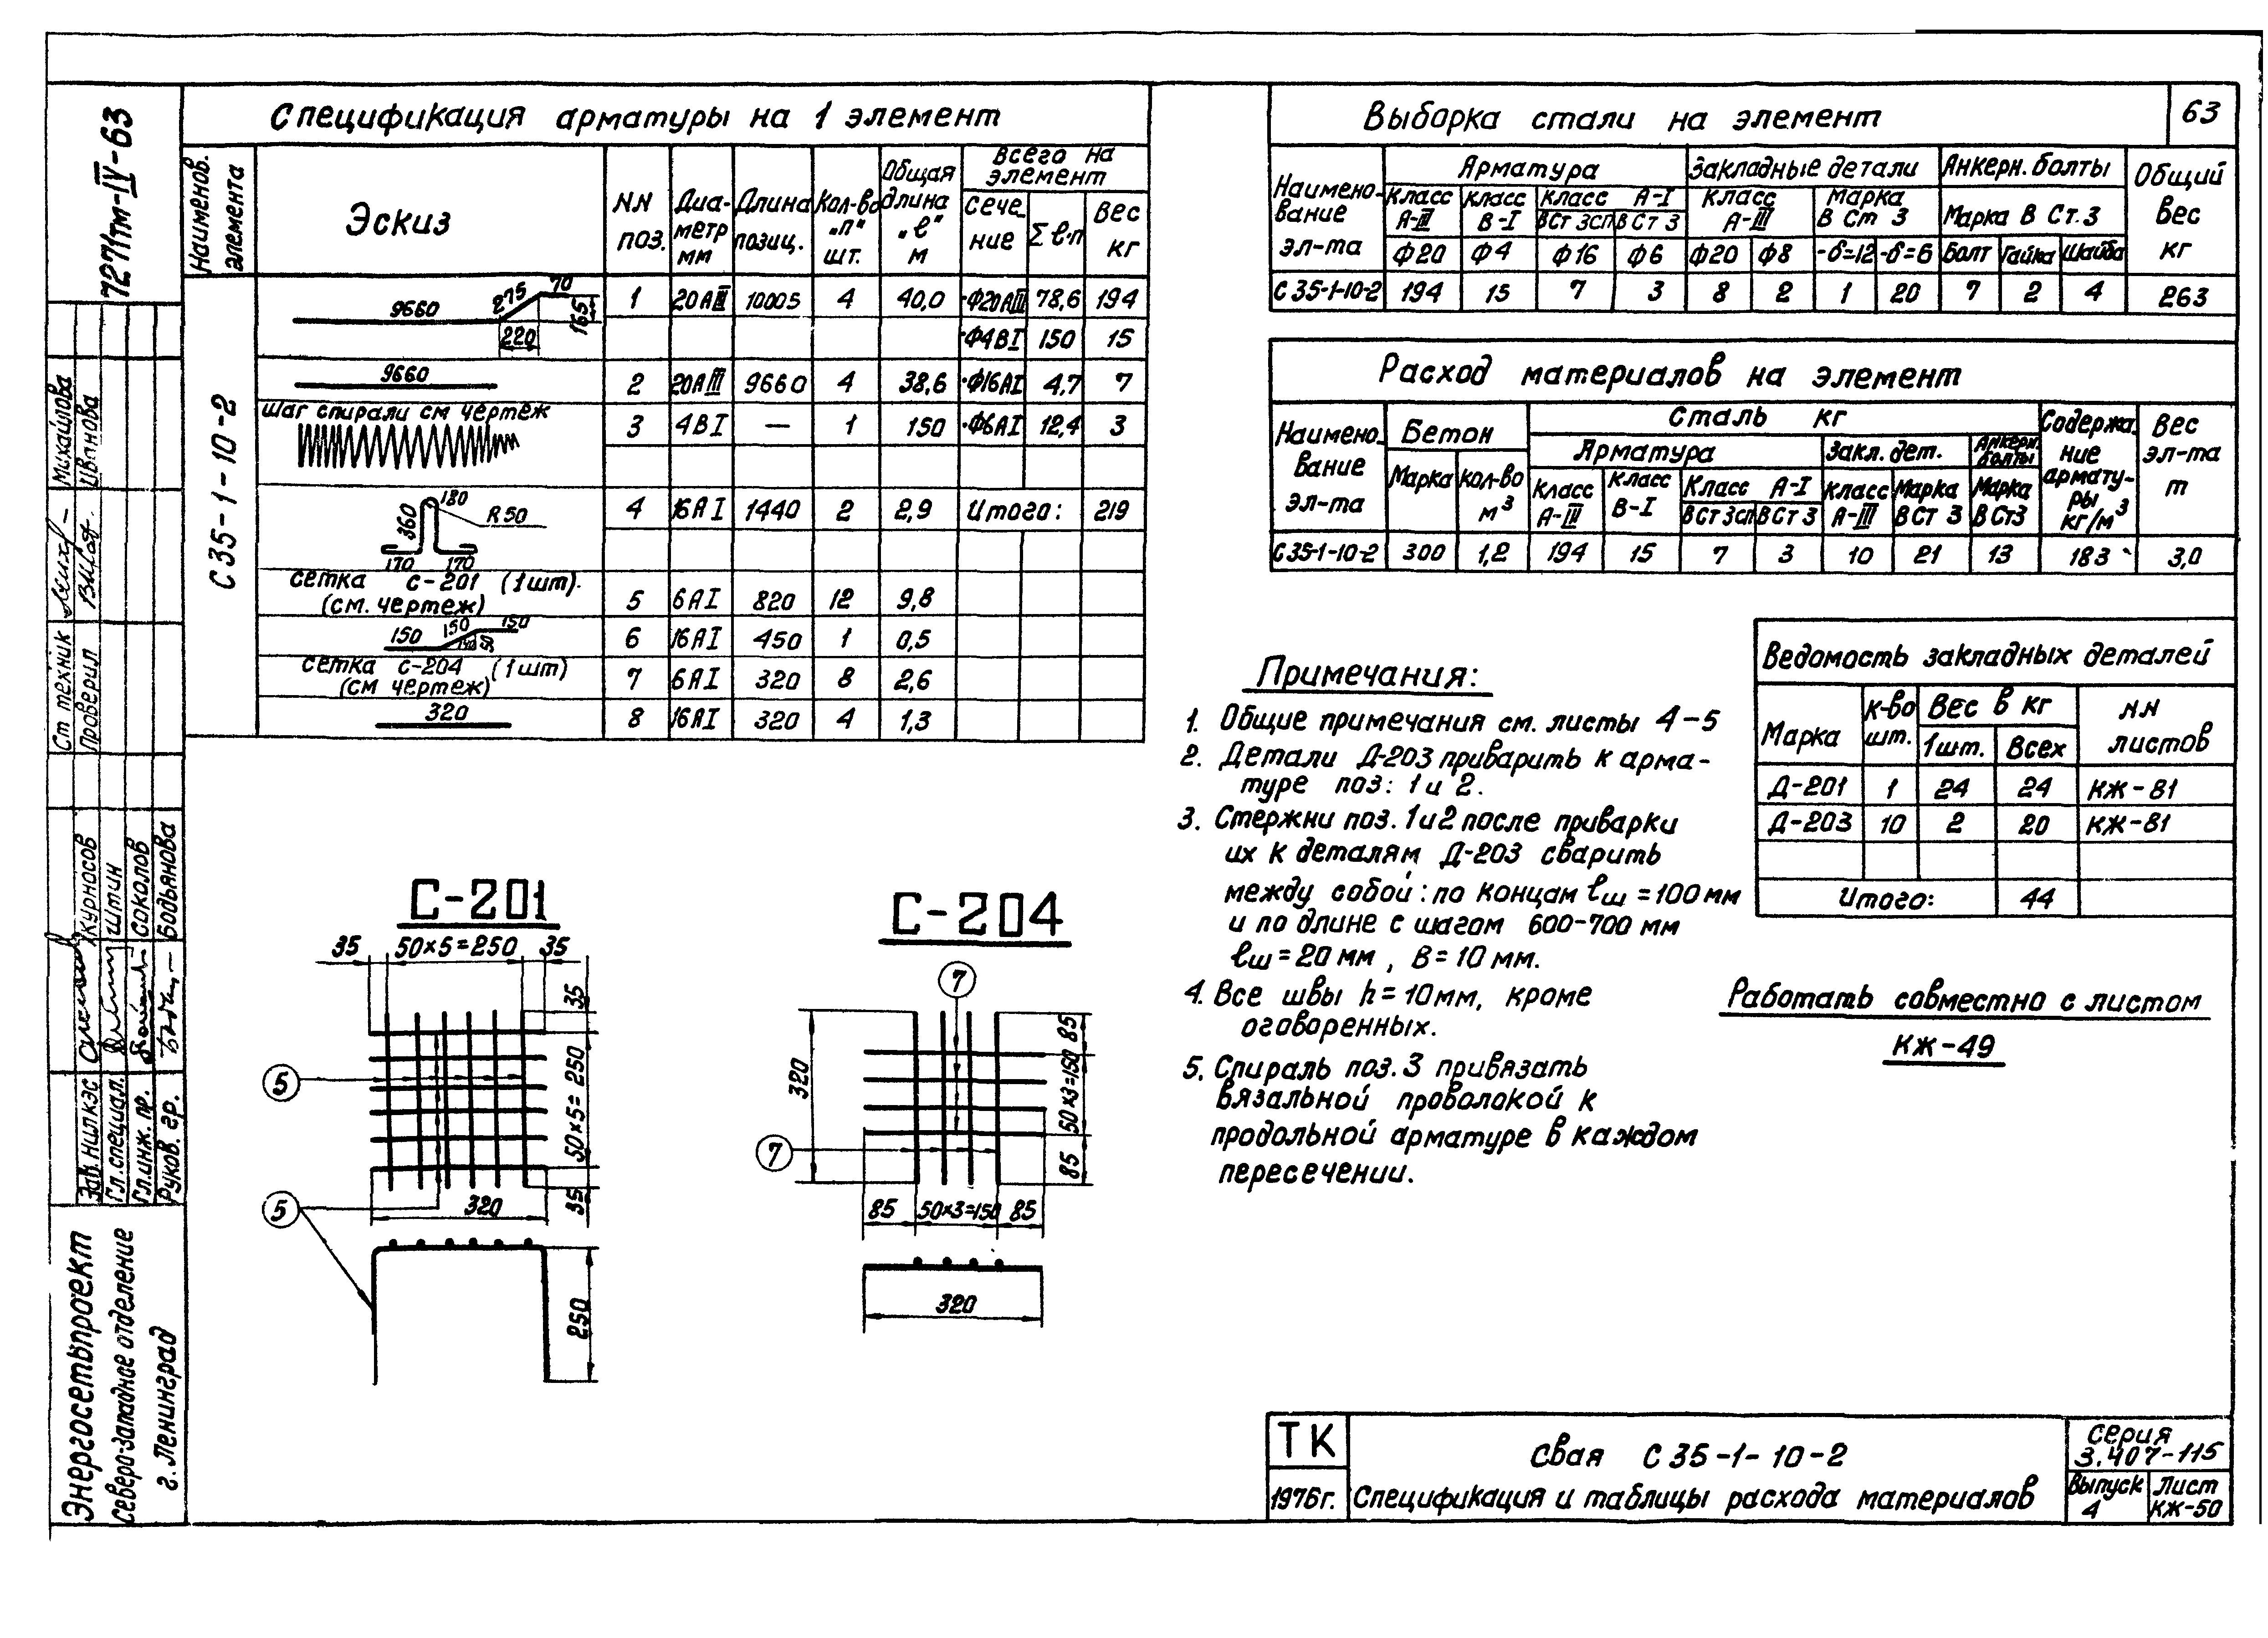 63
7271тм-IV-63
Спецификация арматуры на 1 элемент
Наименов. элемента
Эскиз
NN поз.
Диаметр мм
Длина позиц.
Кол-во "п" шт.
Общая длина "ℓ" м
Всего на элемент
Сечение
Σℓ·п
Вес кг
С35-1-10-2
9660 275 70 165 220
1 20АIII 10005 4 40,0 ·Ф20АIII 78,6 194
·Ф4ВI 150 15
9660
2 20АIII 9660 4 38,6 ·Ф16АI 4,7 7
шаг спирали см чертеж
3 4ВI — 1 150 ·Ф6АI 12,4 3
360 180 R50 170 170
4 16АI 1440 2 2,9 Итого: 219
сетка С-201 (1шт).
(см. чертеж)
5 6АI 820 12 9,8
150 150 150
6 16АI 450 1 0,5
сетка С-204 (1шт)
(см чертеж)
7 6АI 320 8 2,6
320
8 16АI 320 4 1,3
Выборка стали на элемент
Наименование эл-та
Арматура
Закладные детали
Анкерн. болты
Общий вес кг
Класс А-III
Класс В-I
Класс А-I
ВСт3сп
ВСт3
Класс А-III
Марка ВСт3
Марка ВСт.3
Ф20 Ф4 Ф16 Ф6 Ф20 Ф8 -δ=12 -δ=6 Болт Гайка Шайба
С35-1-10-2 194 15 7 3 8 2 1 20 7 2 4 263
Расход материалов на элемент
Наименование эл-та
Бетон
Сталь кг
Содержание арматуры кг/м³
Вес эл-та т
Марка
Кол-во м³
Арматура
Закл. дет.
Анкерн. болты
Класс А-III
Класс В-I
Класс А-I
ВСт3сп
ВСт3
Класс А-III
Марка ВСт3
Марка ВСт3
С35-1-10-2 300 1,2 194 15 7 3 10 21 13 183 3,0
Примечания:
1. Общие примечания см. листы 4-5
2. Детали Д-203 приварить к арма-
туре поз: 1 и 2.
3. Стержни поз. 1и2 после приварки
их к деталям Д-203 сварить
между собой: по концам ℓш=100мм
и по длине с шагом 600-700 мм
ℓш=20мм, В=10мм.
4. Все швы h=10мм, кроме
оговоренных.
5. Спираль поз.3 привязать
вязальной проволокой к
продольной арматуре в каждом
пересечении.
Ведомость закладных деталей
Марка
К-во шт.
Вес в кг
1шт.
Всех
NN листов
Д-201 1 24 24 КЖ-81
Д-203 10 2 20 КЖ-81
Итого: 44
Работать совместно с листом
КЖ-49
С-201
35 50×5=250 35
35
50×5=250
35
5
5
320
250
С-204
7
7
320
85
50×3=150
85
85 50×3=150 85
320
Ст техник Михайлова
Проверил Иванова
Зав. НИЛКЭС Курносов
Гл. специал. Штин
Гл. инж. пр. Соколов
Руков. гр. Бодьянова
Энергосетьпроект
Северо-западное отделение
г. Ленинград
ТК
1976г.
Свая С35-1-10-2
Спецификация и таблицы расхода материалов
Серия
3.407-115
Выпуск 4
Лист КЖ-50